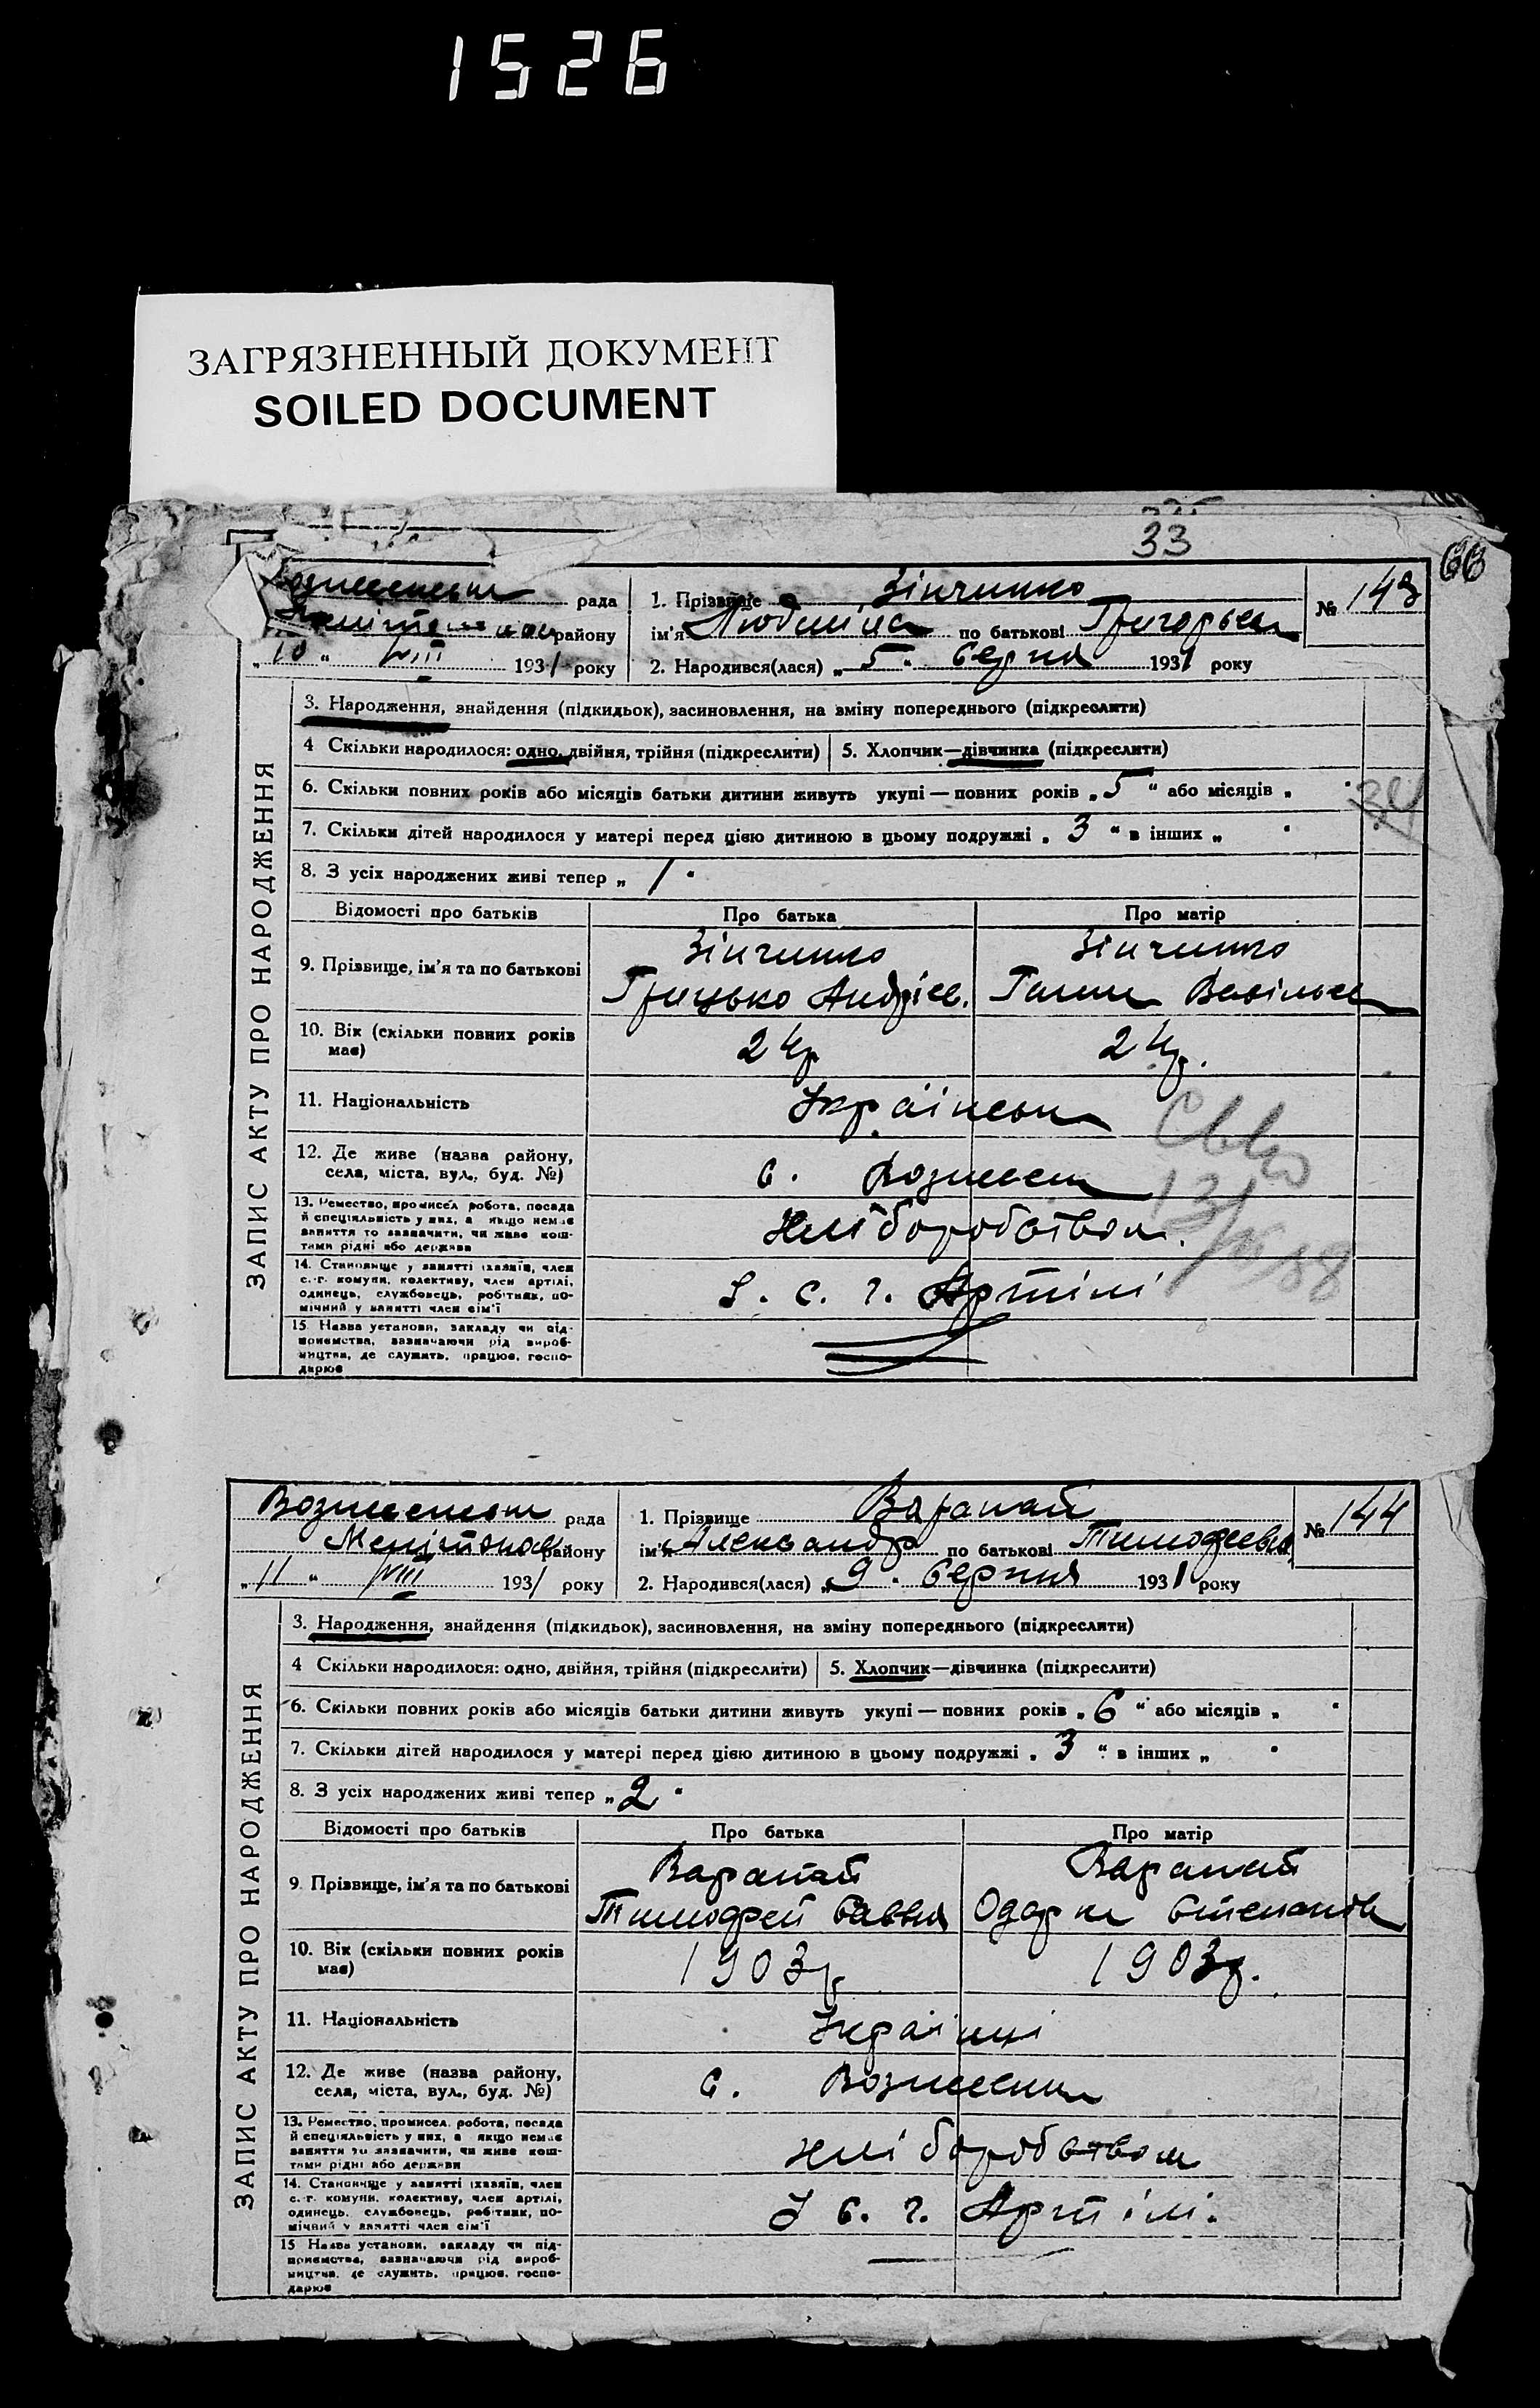 1526
ЗАГРЯЗНЕННЫЙ ДОКУМЕНТ
SOILED DOCUMENT
33
ЗАПИС АКТУ ПРО НАРОДЖЕННЯ
рада
району
„10“ VIII 1931 року
1. Прізвище Зінчинко
ім'я Людміла по батькові Григорьев
2. Народився(лася) „5“ Серпня 1931 року
№ 143
3. Народження, знайдення (підкидьок), засиновлення, на зміну попереднього (підкреслити)
4 Скільки народилося: одно, двійня, трійня (підкреслити)
5. Хлопчик—дівчинка (підкреслити)
6. Скільки повних років або місяців батьки дитини живуть укупі — повних років „5“ або місяців „ “
7. Скільки дітей народилося у матері перед цією дитиною в цьому подружжі „3“ в інших „ “
8. З усіх народжених живі тепер „1“
Відомості про батьків
Про батька
Про матір
9. Прізвище, ім'я та по батькові
Зінчинко
Грицько Андріев.
Зінчинко
Ганна Васільев
10. Вік (скільки повних років має)
24р
24р.
11. Національність
Українськ
12. Де живе (назва району,
села, міста, вул., буд. №)
с. Вознесен
13. Ремество, промисел робота, посада
й спеціяльність у них, а якщо немає
заняття то зазначити, чи живе кош-
тами рідні або держави
Хліборобством.
14. Становище у занятті (хазяїн, член
с.-г. комуни, колективу, член артілі,
одинець, службовець, робітник, по-
мічний у занятті член сім'ї
с. г. Артілі
15 Назва установи, закладу чи під-
приємства, зазначаючи рід вироб-
ництва, де служить, працює, госпо-
дарює
ЗАПИС АКТУ ПРО НАРОДЖЕННЯ
Вознесенськ рада
Мелітопол району
„11“ VIII 1931 року
1. Прізвище Варапай
ім'я Александр по батькові Тимофеевич
2. Народився(лася) „9“ Серпня 1931 року
№ 144
3. Народження, знайдення (підкидьок), засиновлення, на зміну попереднього (підкреслити)
4 Скільки народилося: одно, двійня, трійня (підкреслити)
5. Хлопчик—дівчинка (підкреслити)
6. Скільки повних років або місяців батьки дитини живуть укупі — повних років „6“ або місяців „ “
7. Скільки дітей народилося у матері перед цією дитиною в цьому подружжі „3“ в інших „ “
8. З усіх народжених живі тепер „2“
Відомості про батьків
Про батька
Про матір
9. Прізвище, ім'я та по батькові
Варапай
Тимофей Саввич
Варапай
Одарка Степанов
10. Вік (скільки повних років має)
1903р.
1903р.
11. Національність
Українці
12. Де живе (назва району,
села, міста, вул., буд. №)
с. Вознесенка
13. Ремество, промисел, робота, посада
й спеціяльність у них, а якщо немає
заняття то зазначити, чи живе кош-
тами рідні або держави
Хліборобством
14. Становище у занятті (хазяїн, член
с.-г. комуни, колективу, член артілі,
одинець, службовець, робітник, по-
мічний у занятті член сім'ї
с. г. Артілі.
15 Назва установи, закладу чи під-
приємства, зазначаючи рід вироб-
ництва, де служить, працює, госпо-
дарює